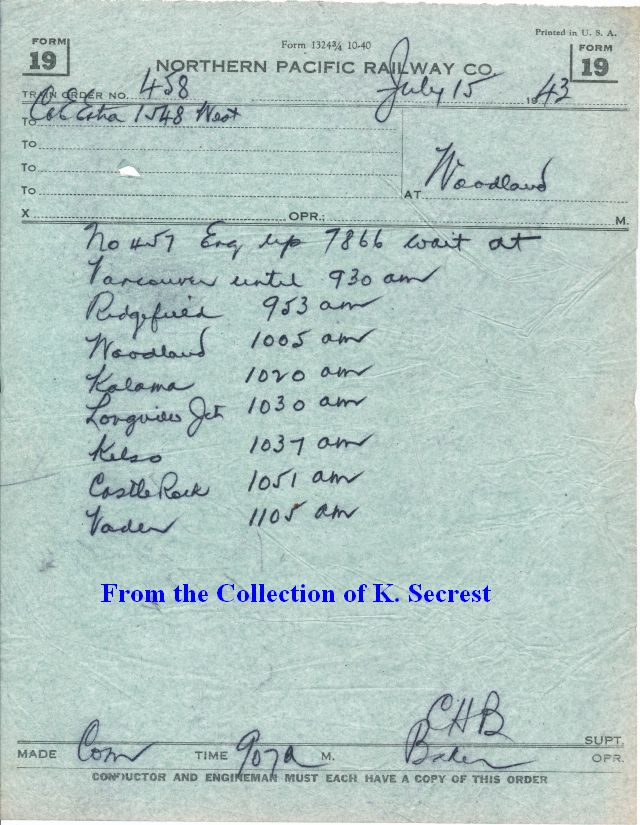 Printed in U. S. A.
FORM 19
Form 1324¾ 10-40
FORM 19
NORTHERN PACIFIC RAILWAY CO.
TRAIN ORDER NO. 458 July 15 1943
To C&E Extra 1548 West
To
To
To
To
AT Woodland
X OPR.; M.
No 457 Eng 7866 wait at
Vancouver until 930 am
Ridgefield 953 am
Woodland 1005 am
Kalama 1020 am
Longview Jct 1030 am
Kelso 1037 am
Castle Rock 1051 am
Vader 1105 am
From the Collection of K. Secrest
CHB
SUPT.
MADE Com TIME 907a M. Baker OPR.
CONDUCTOR AND ENGINEMAN MUST EACH HAVE A COPY OF THIS ORDER